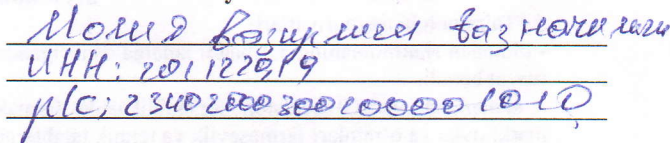 Молия вазирлиги вазначилиги
ИНН: 201122919
р/с: 23402000300100001010